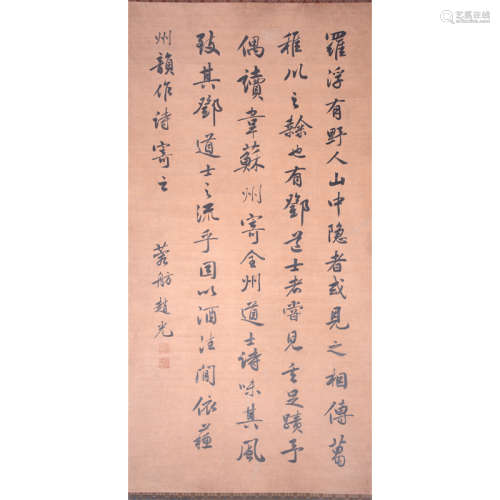 羅浮有野人山中隐者或見之相傳葛
稚川之隸也有鄧道士者嘗見其足蹟予
偶讀韋蘇州寄全州道士詩味其風
致其鄧道士之流乎因以酒注間依蘇
州韻作詩寄之
蓉舫趙光
艺狐在线